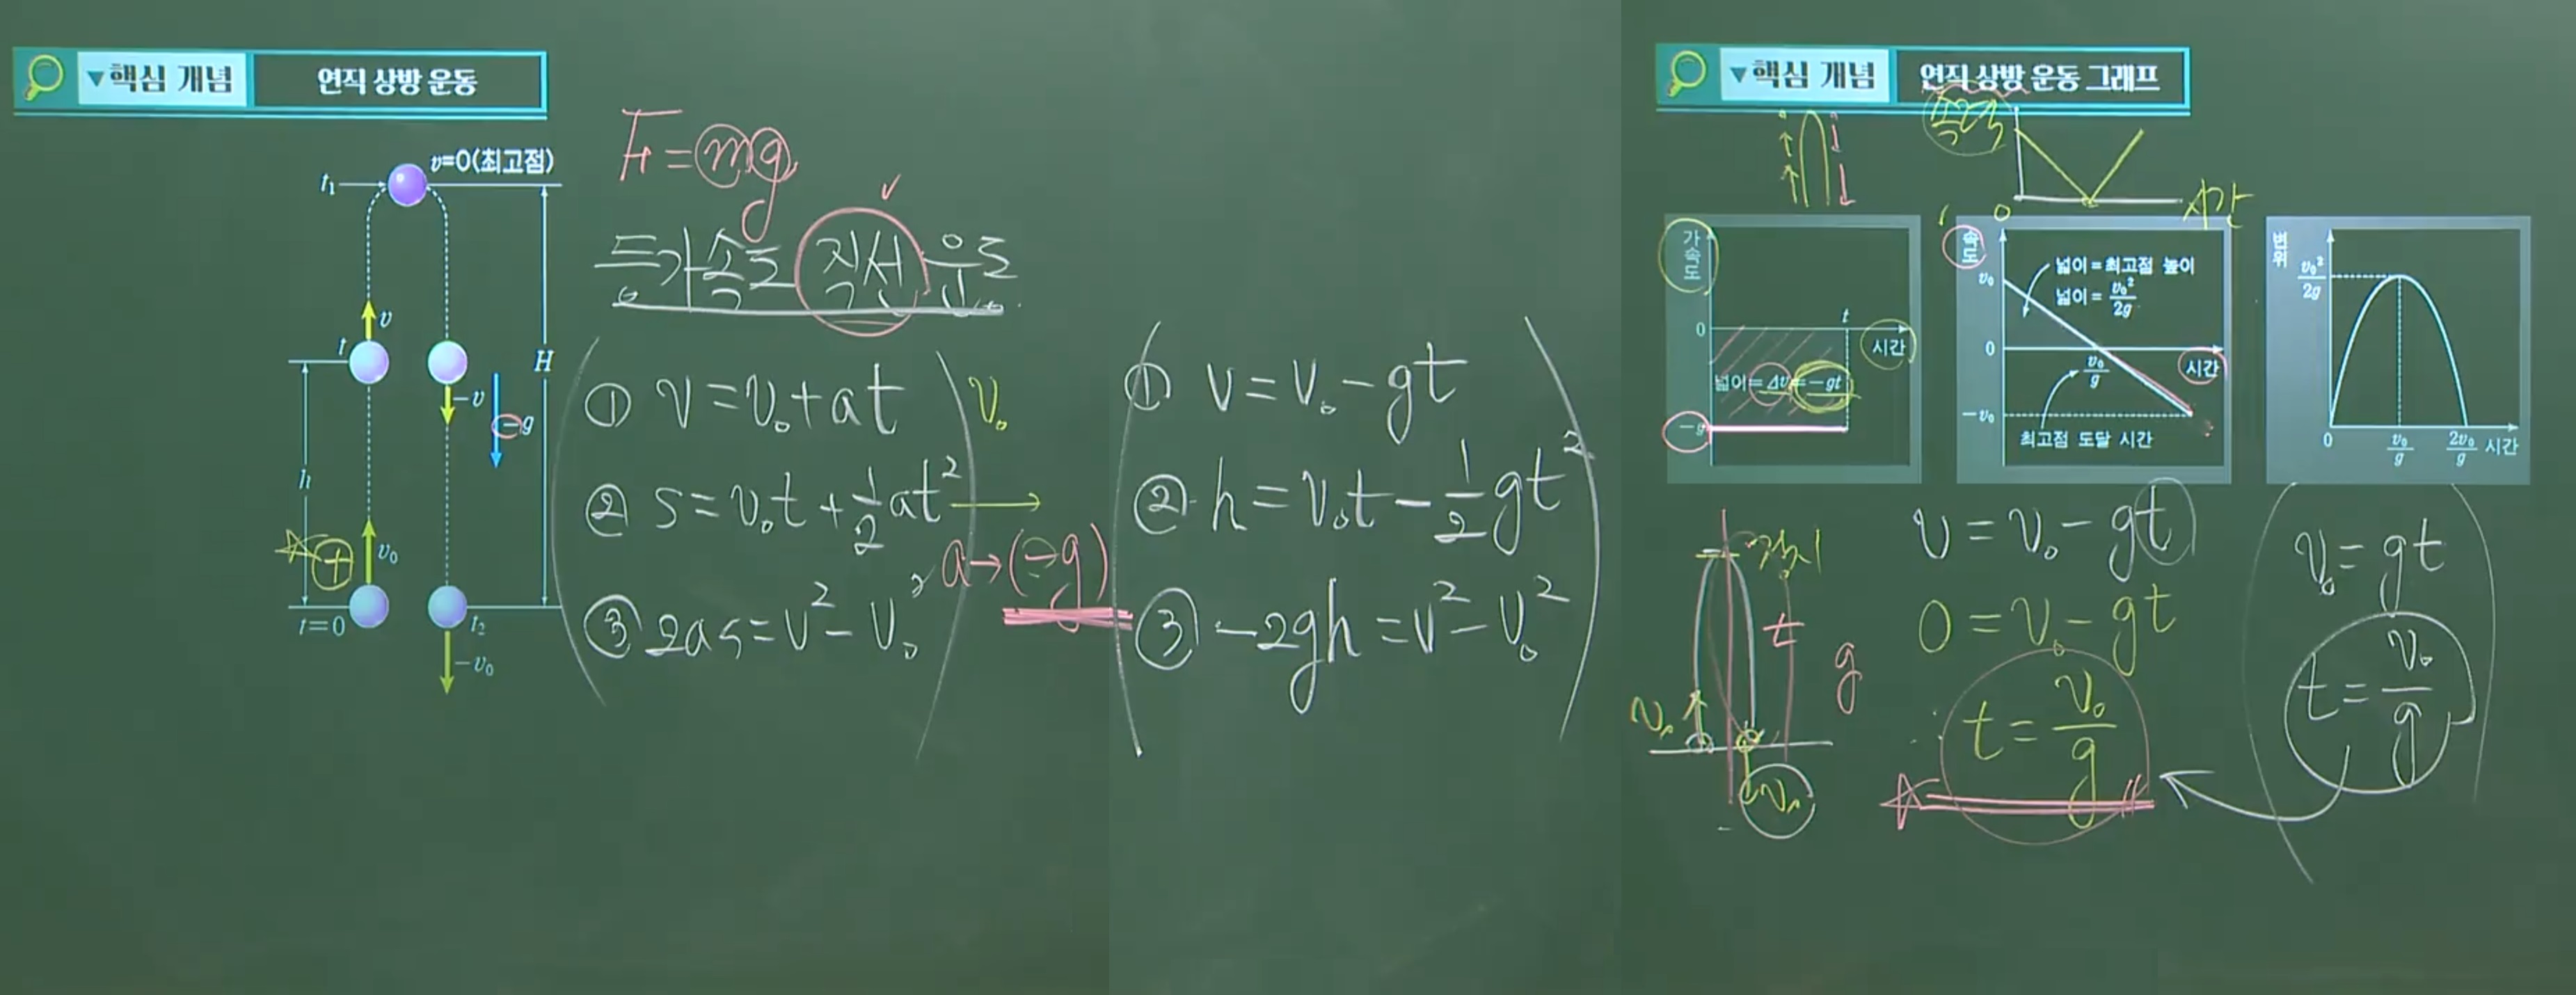 핵심 개념
연직 상방 운동
v=0(최고점)
t₁
v
t
-v
-g
H
h
+
v₀
t=0
t₂
-v₀
F=mg
등가속도 직선 운동
① v=v₀+at
② s=v₀t+½at²
③ 2as=v²-v₀²
v₀
a→(-g)
① v=v₀-gt
② h=v₀t-½gt²
③ -2gh=v²-v₀²
핵심 개념
연직 상방 운동 그래프
속력
0
시간
가속도
0
t
시간
넓이=Δv=-gt
-g
속도
v₀
넓이=최고점 높이
넓이=v₀²/2g
0
v₀/g
시간
-v₀
최고점 도달 시간
변위
v₀²/2g
0
v₀/g
2v₀/g
시간
t
g
v₀
v₀
v=v₀-gt
0=v₀-gt
t=v₀/g
v₀=gt
t=v₀/g